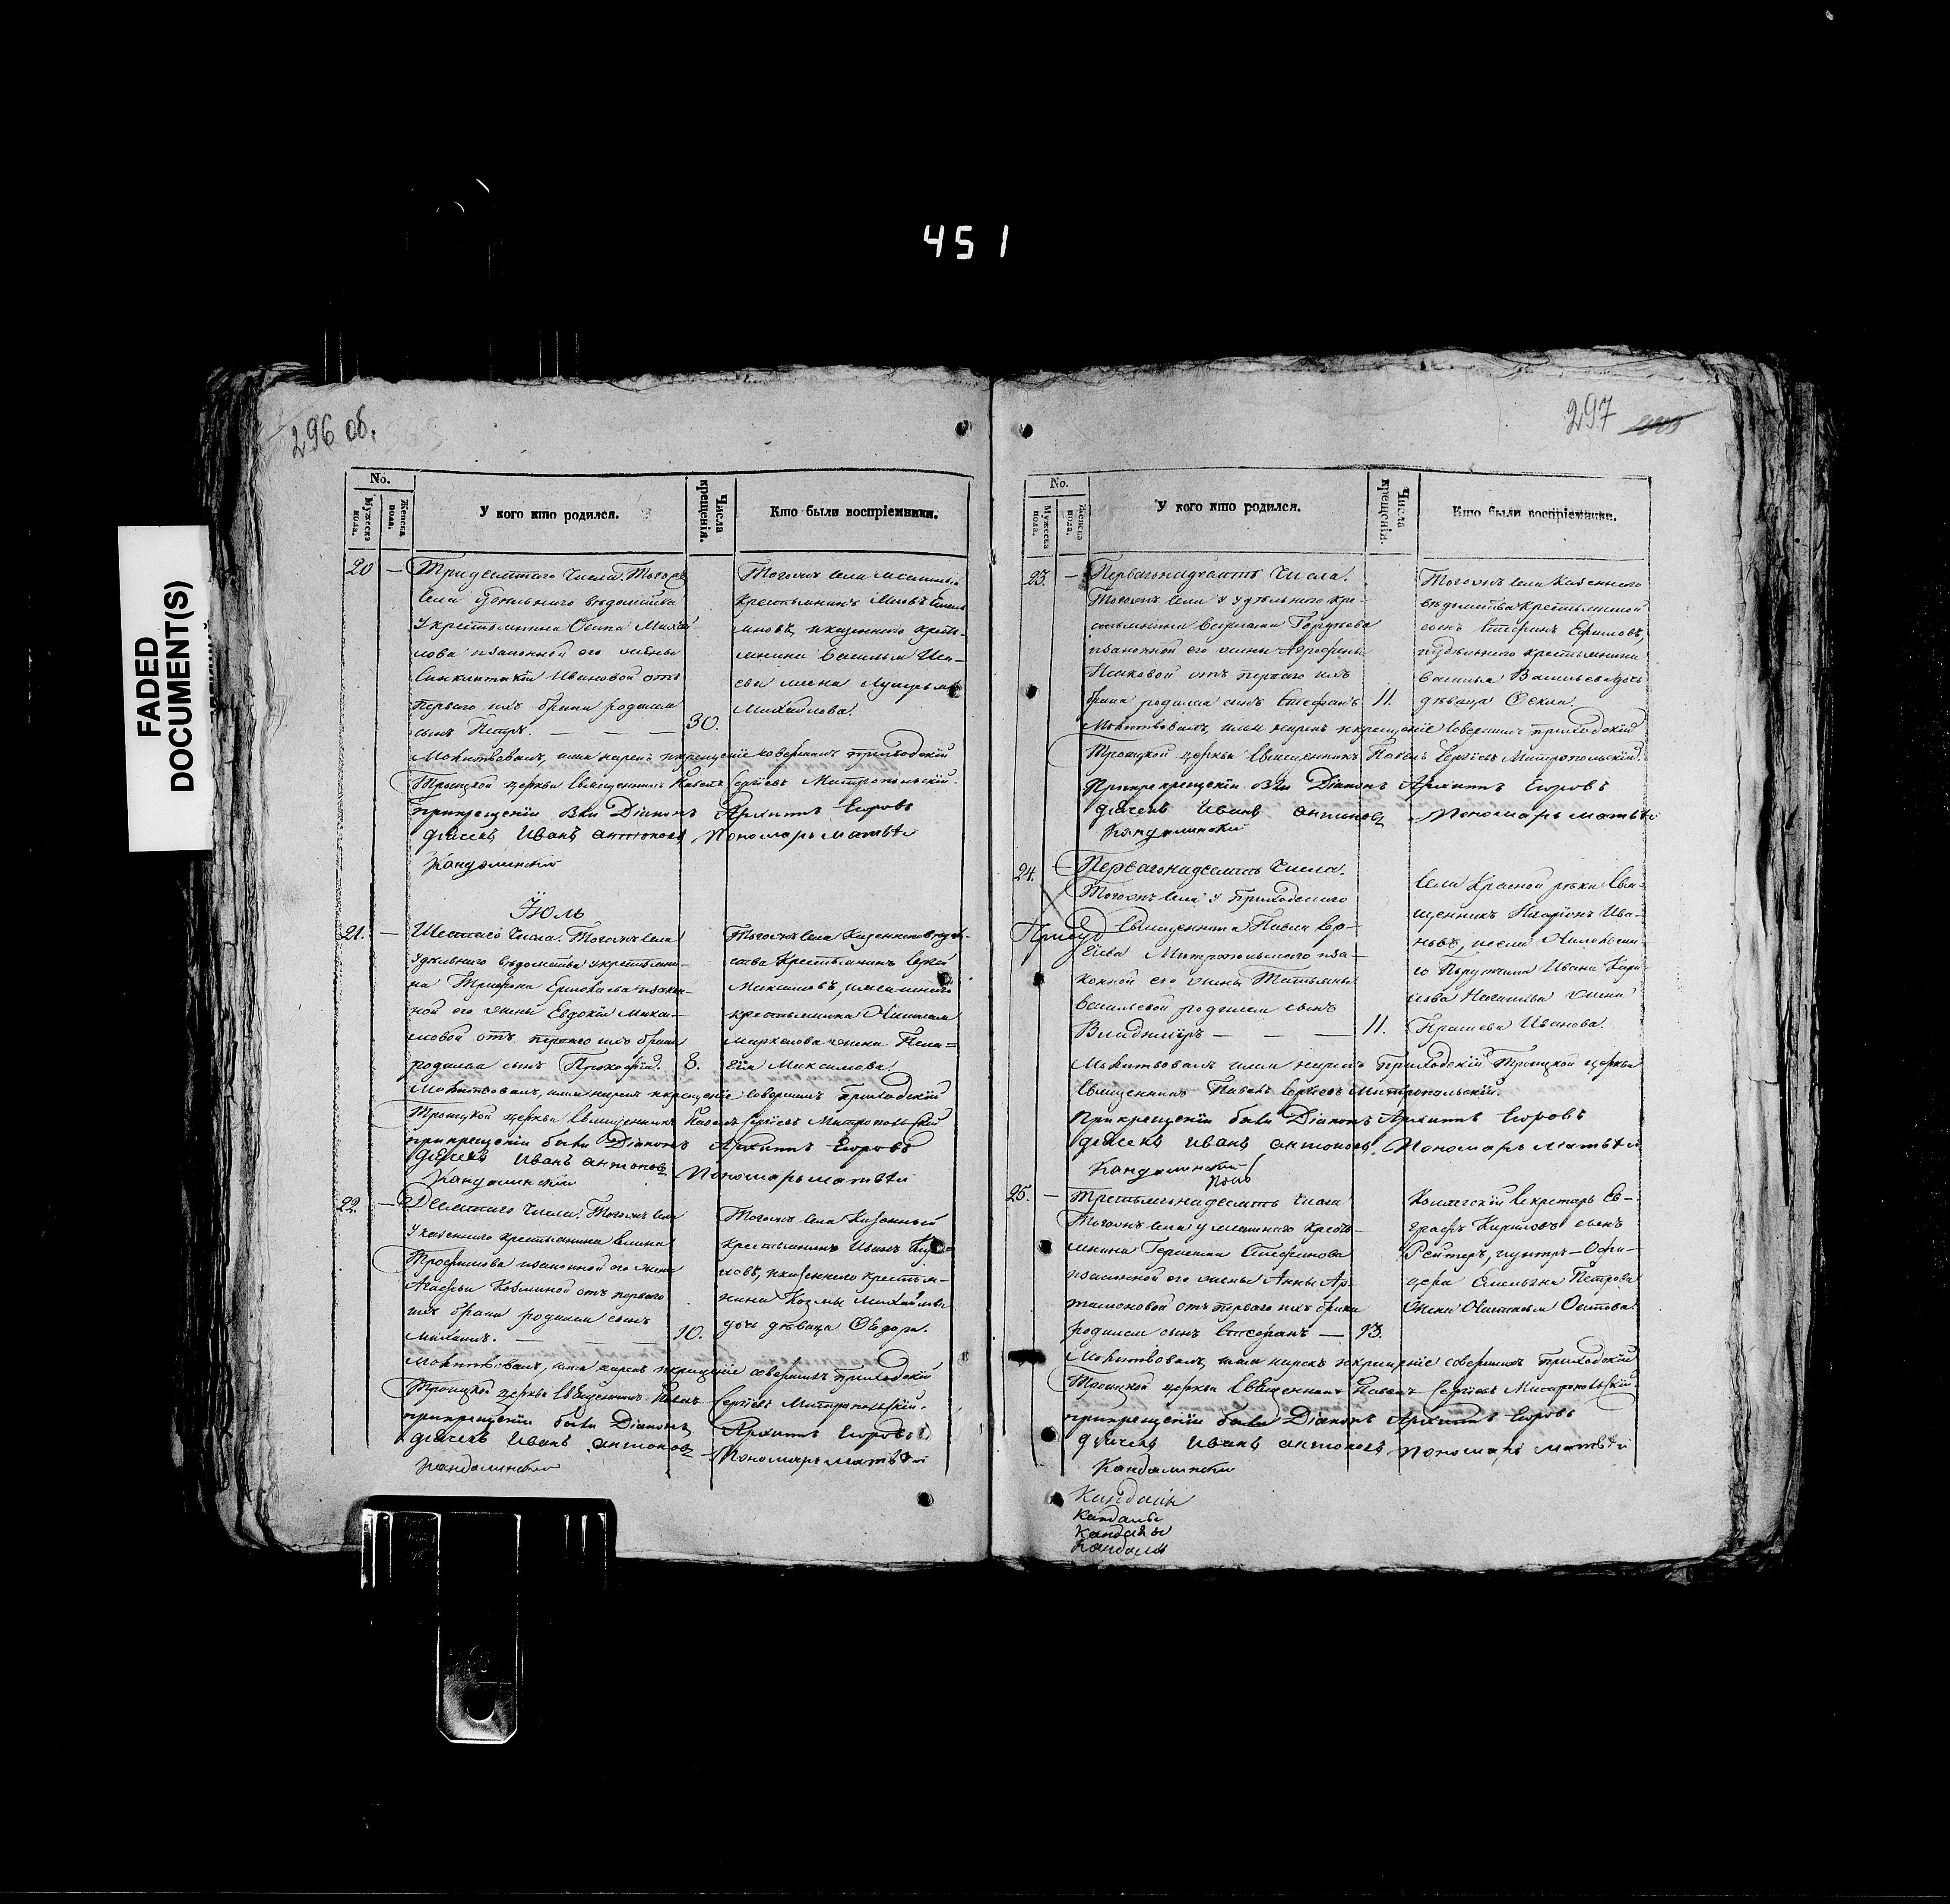 451
FADED
DOCUMENT(S)
296 об.
No.
Мужеска пола.
Женска пола.
У кого кто родился.
Числа крещенія.
Кто были воспріемники.
20 — Тридесятаго числа. Тогожъ
села удѣльнаго вѣдомства
у крестьянина Осипа Михай-
лова и законной его жены
Синклитикіи Ивановой отъ
перваго ихъ брака родился
сынъ Петръ. — — — 30.
Тогожъ села
крестьянинъ
и казеннаго кресть-
янина Василья
жена
Михайлова.
Молитвовалъ, имя нарекъ и крещеніе совершилъ приходскій
Троицкой церкви священникъ Павелъ Сергіевъ Митропольскій.
при крещеніи были Діаконъ Архипъ Егоровъ
дьячекъ Иванъ Антоновъ Пономарь Матвѣй
Кандалинскій
Іюль
21. — Шестаго числа. Тогожъ села
удѣльнаго вѣдомства у крестьяни-
на Трифона и закон-
ной его жены Евдокіи
отъ перваго ихъ брака
родился сынъ Прокофій. 8.
Тогожъ села казеннаго вѣдом-
ства крестьянинъ Сергѣй
Максимовъ,
крестьянина Николая
Маркелова жена Пела-
гія Максимова.
Молитвовалъ, имя нарекъ и крещеніе совершилъ приходскій
Троицкой церкви священникъ Павелъ Сергіевъ Митропольскій
при крещеніи были Діаконъ Архипъ Егоровъ
дьячекъ Иванъ Антоновъ Пономарь Матвѣй
Кандалинскій
22. — Десятаго числа. Тогожъ села
у казеннаго крестьянина
Трофимова и законной его жены
Агафьи Козминой отъ перваго
ихъ брака родился сынъ
Михаилъ. — — — 10.
Тогожъ села казенный
крестьянинъ Иванъ
и казеннаго крестья-
нина Козмы Михайлова
дочь дѣвица Ѳедора.
Молитвовалъ, имя нарекъ и крещеніе совершилъ приходскій
Троицкой церкви священникъ Павелъ Сергіевъ Митропольскій.
при крещеніи были Діаконъ Архипъ Егоровъ
дьячекъ Иванъ Антоновъ Пономарь Матвѣй
Кандалинскій
297
No.
Мужеска пола.
Женска пола.
У кого кто родился.
Числа крещенія.
Кто были воспріемники.
23. — Первагонадесять числа.
Тогожъ села у удѣльнаго кре-
стьянина
и законной его жены
отъ перваго ихъ
брака родился сынъ Стефанъ 11.
Тогожъ села казеннаго
вѣдомства крестьянской
сынъ Стефанъ Ефимовъ,
и удѣльнаго крестьянина
Василья Васильева дочь
дѣвица
Молитвовалъ, имя нарекъ и крещеніе совершилъ приходскій
Троицкой церкви священникъ Павелъ Сергіевъ Митропольскій.
При крещеніи были Діаконъ Архипъ Егоровъ
дьячекъ Иванъ Антоновъ Пономарь Матвѣй
Кандалинскій
24. — Первагонадесять числа.
Тогожъ села у приходскаго
священника Павла Сер-
гіева Митропольскаго и за-
конной его жены Татьяны
Васильевой родился сынъ
Владиміръ — — — 11.
Села Красной рѣки свя-
щенникъ Иларіонъ Ива-
новъ,
Ивана
жена
Иванова.
Молитвовалъ имя нарекъ приходскій Троицкой церкви
священникъ Павелъ Сергіевъ Митропольскій.
При крещеніи были Діаконъ Архипъ Егоровъ
дьячекъ Иванъ Антоновъ Пономарь Матвѣй
Кандалинскій
25. — Третьягонадесять числа
Тогожъ села у кресть-
янина Герасима Стефанова
и законной его жены Анны Ар-
тамоновой отъ перваго ихъ брака
родился сынъ Стефанъ — 13.
Коллежскій секретарь Ев-
графъ Кириловъ сынъ
Рейтеръ, и унтръ-Офи-
цера Емельяна Петрова
жена
Молитвовалъ, имя нарекъ и крещеніе совершилъ приходскій
Троицкой церкви священникъ Павелъ Сергіевъ Митропольскій
при крещеніи были Діаконъ Архипъ Егоровъ
дьячекъ Иванъ Антоновъ Пономарь Матвѣй
Кандалинскій
Кандалы
Кандалы
Кандалы
Кандалы